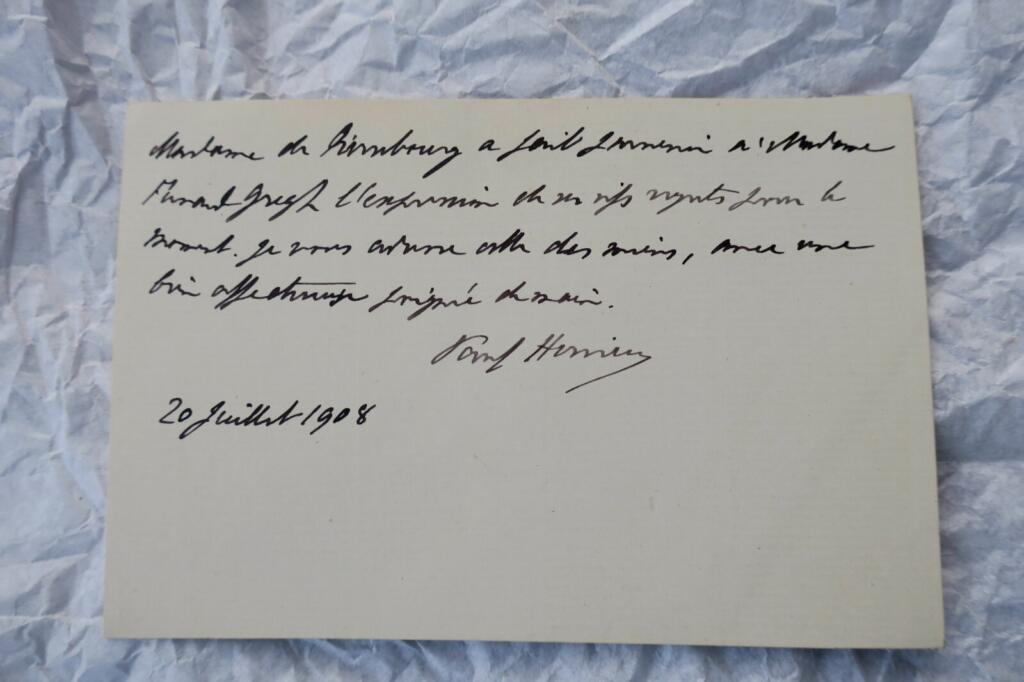 Madame de Pierrebourg a fait parvenir à Madame
Fernand Gregh l'expression de ses vifs regrets pour le
moment. Je vous adresse celle des miens, avec une
bien affectueuse poignée de main.
Paul Hervieu
20 Juillet 1908